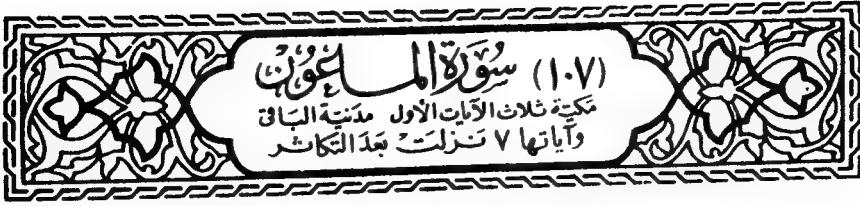 (١٠٧) سُورَة الماعون
مَكيّة ثلاث الآيات الأول مدَنيّة البَاقي
وآياتها ٧ نَزلَتْ بَعدَ التكاثر